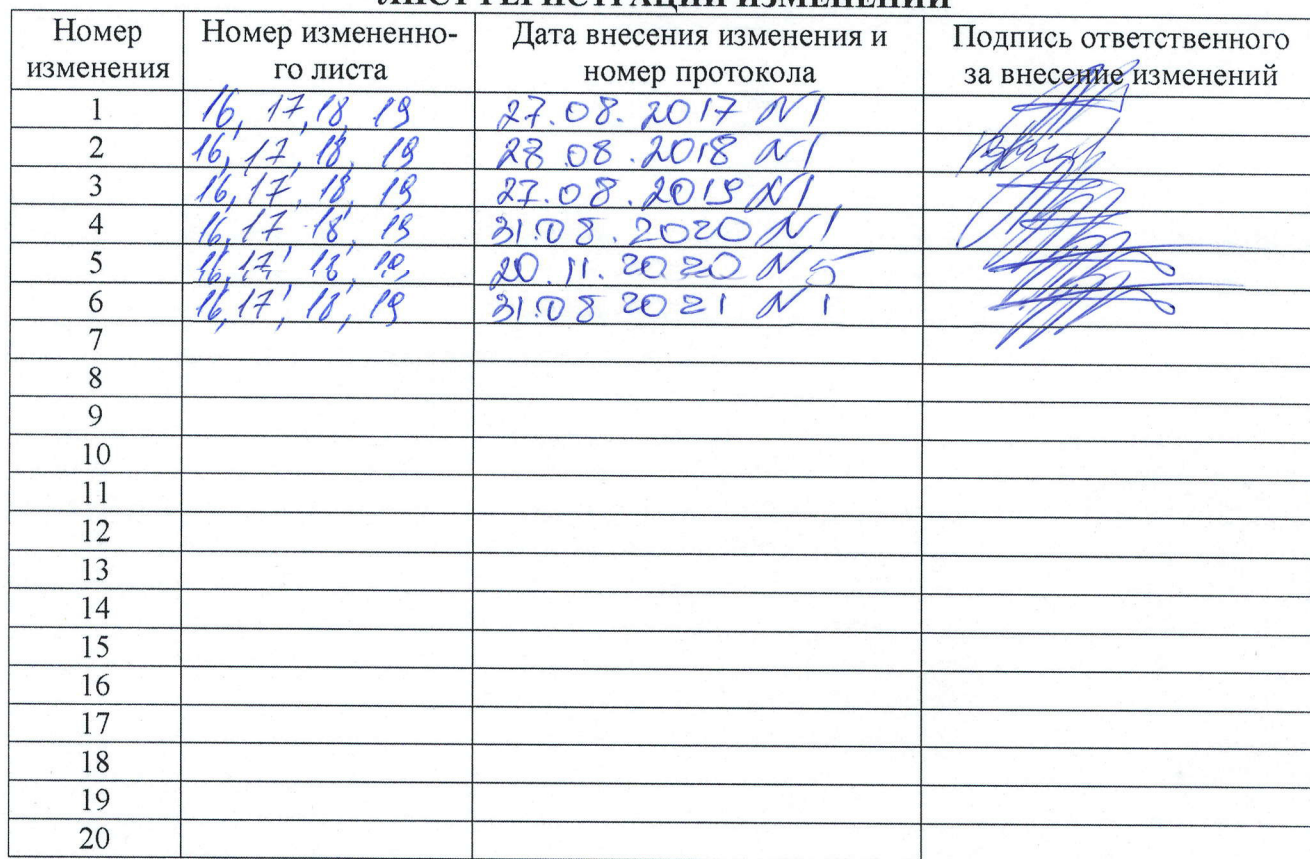 ЛИСТ РЕГИСТРАЦИИ ИЗМЕНЕНИЙ
Номер изменения Номер измененно-го листа Дата внесения изменения и номер протокола Подпись ответственного за внесение изменений
1 16, 17, 18, 19 27.08.2017 N1
2 16, 17, 18, 19 28.08.2018 N1
3 16, 17, 18, 19 27.08.2019 N1
4 16, 17, 18, 19 31.08.2020 N1
5 16, 17, 18, 19, 20.11.2020 N5
6 16, 17, 18, 19 31.08 2021 N1
7
8
9
10
11
12
13
14
15
16
17
18
19
20